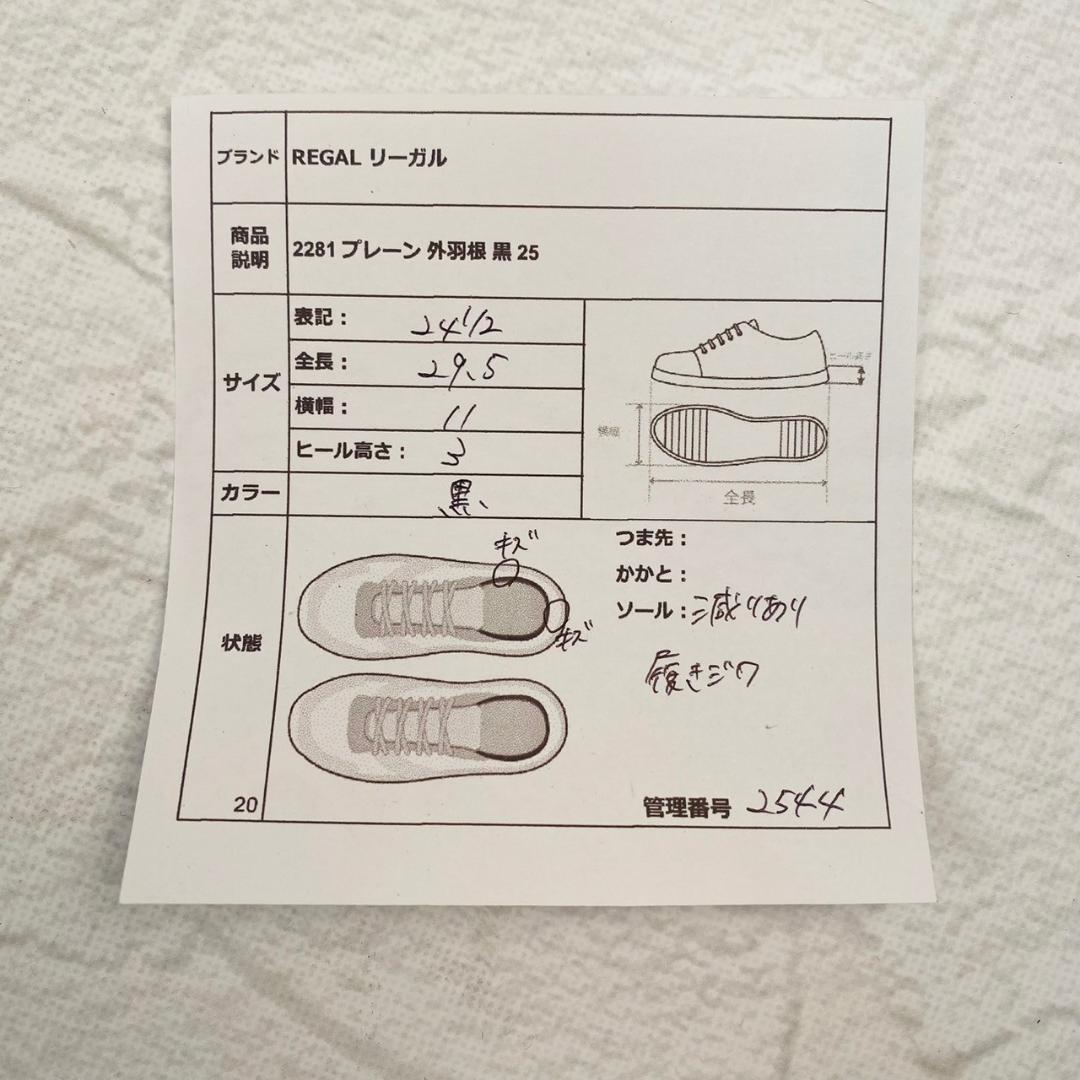 ブランド REGAL リーガル
商品
説明
2281 プレーン 外羽根 黒 25
サイズ
表記： 24 1/2
全長： 29.5
横幅： 11
ヒール高さ： 3
ヒール高さ
横幅
全長
カラー 黒、
状態
キズ
キズ
つま先：
かかと：
ソール：減りあり
履きジワ
20
管理番号 2544